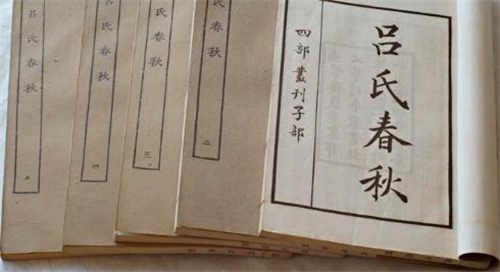 呂氏春秋
四部叢刊子部
呂氏春秋
二
呂氏春秋
三
呂氏春秋
四
呂氏春秋
五